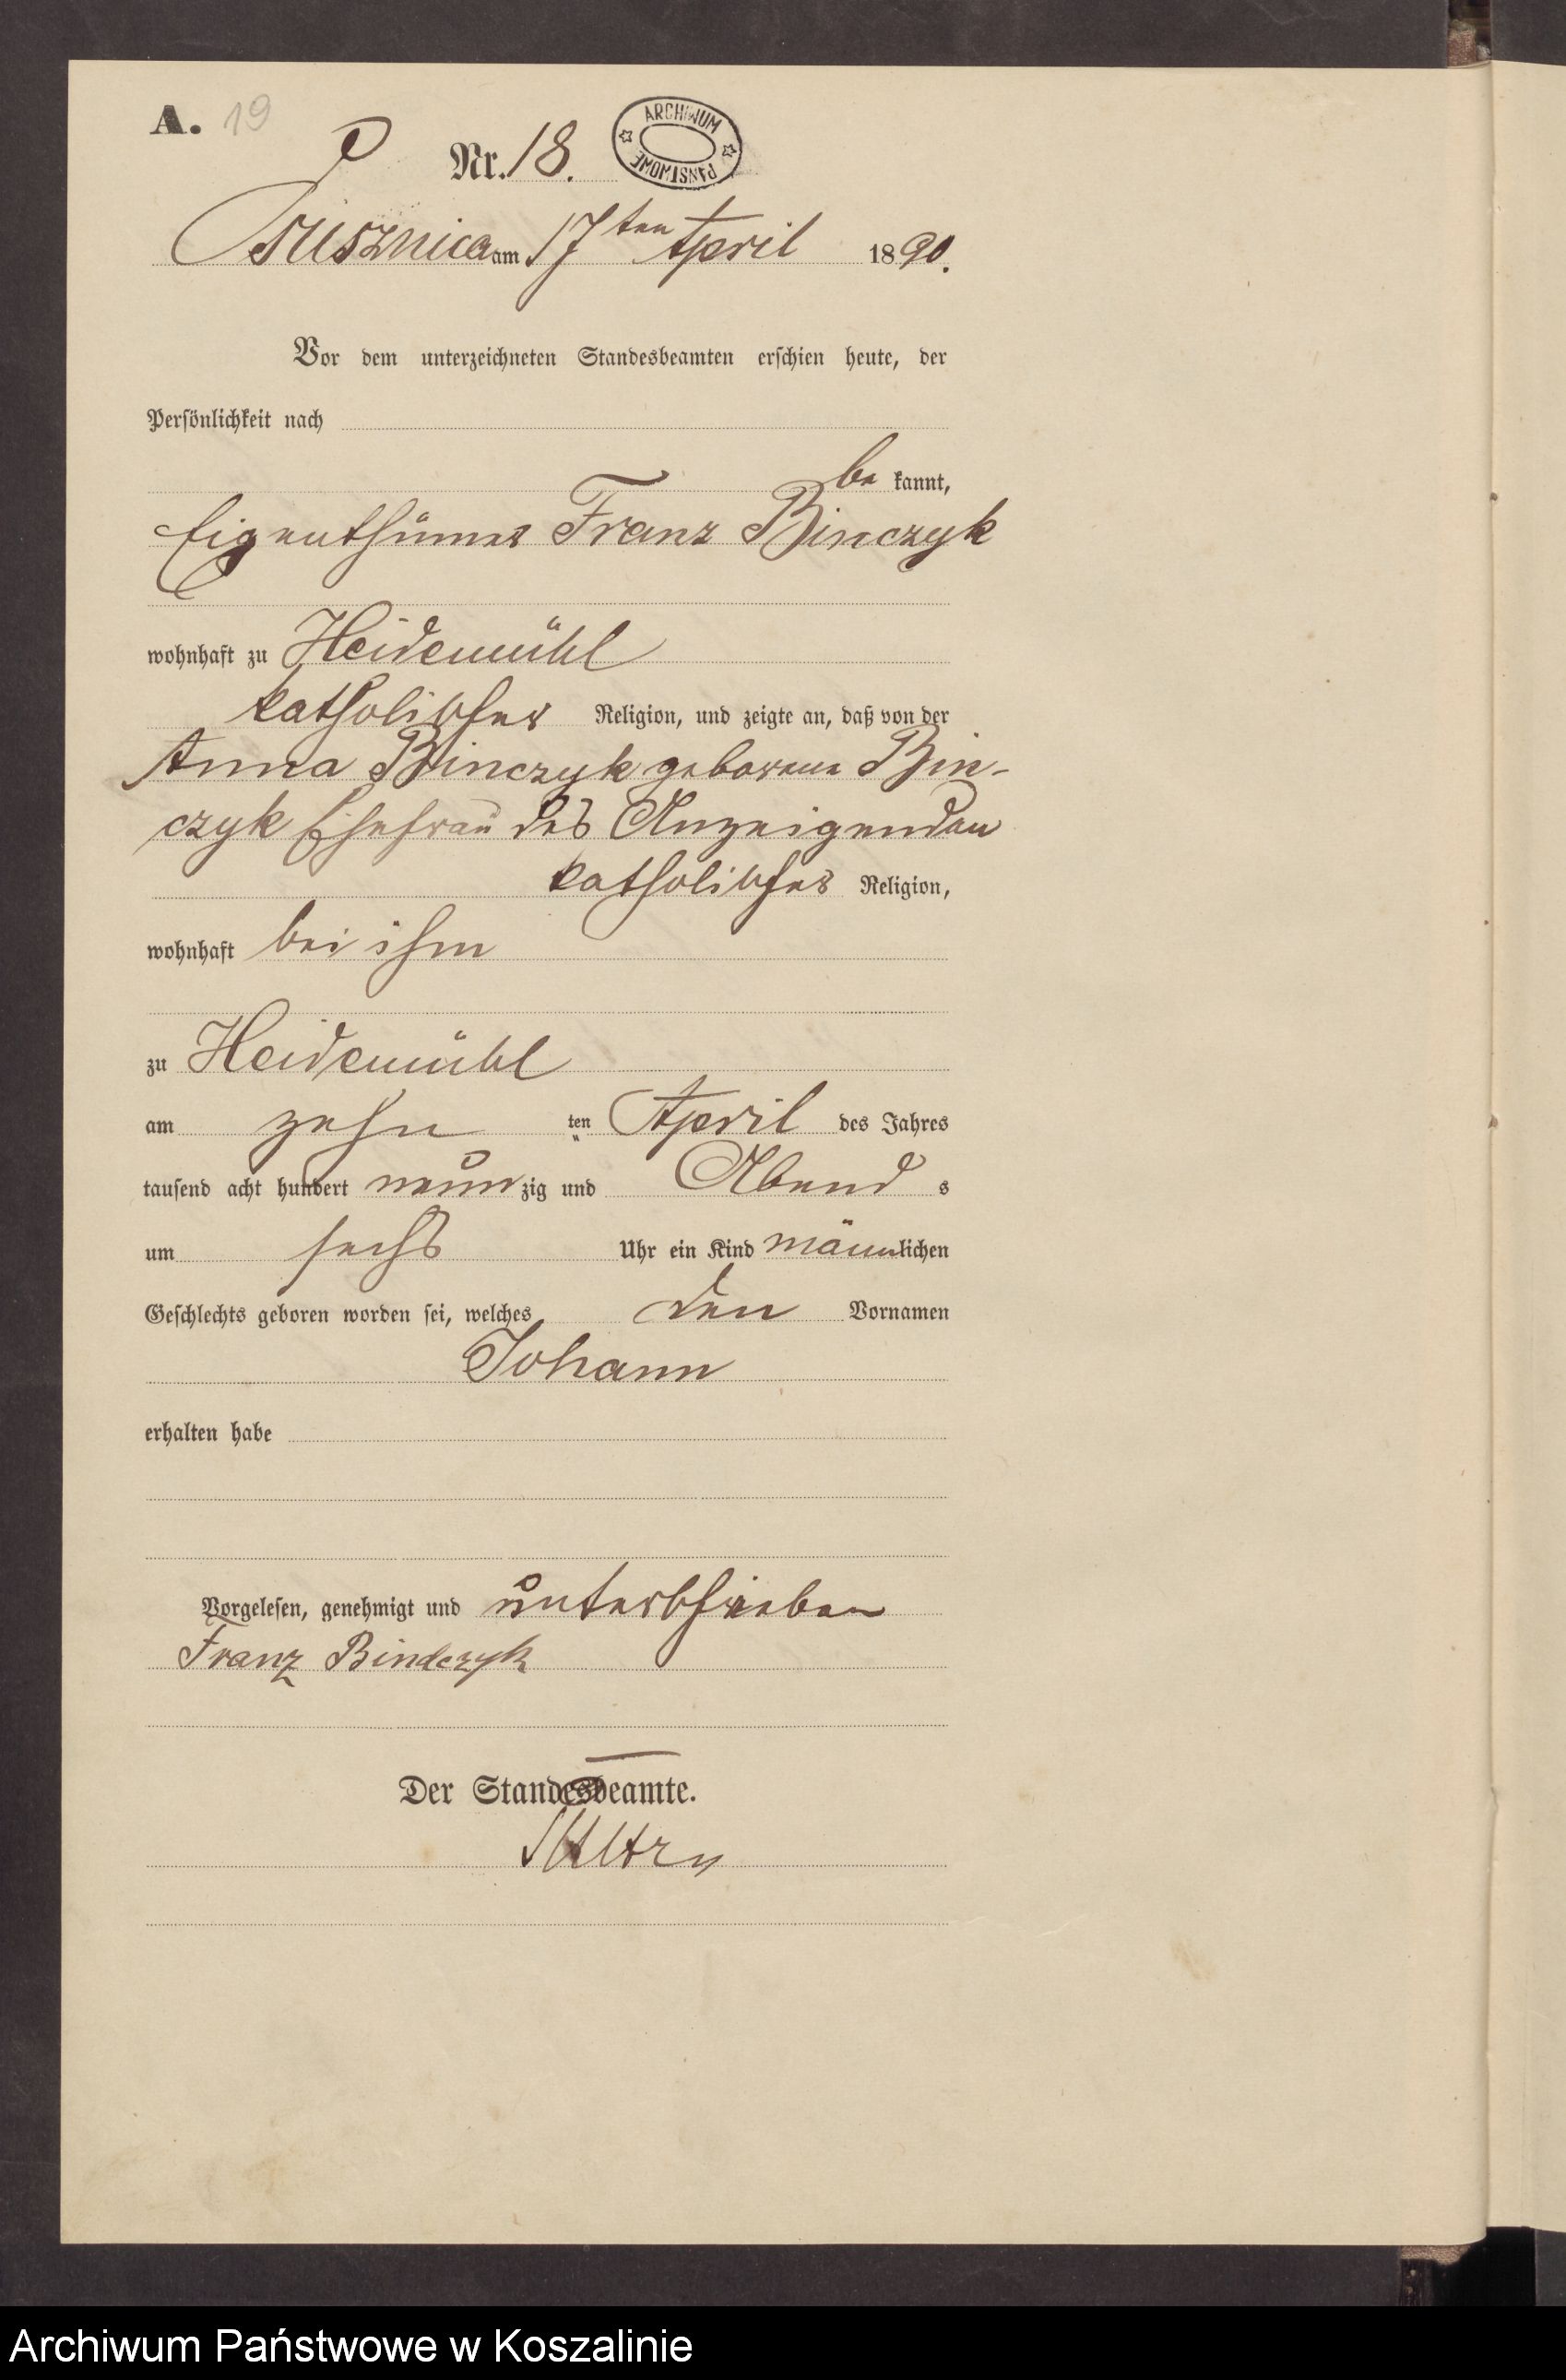 A. 19
Nr. 18.
ARCHIWUM PAŃSTWOWE
am 17ten April 1890.
Vor dem unterzeichneten Standesbeamten erschien heute, der
Persönlichkeit nach
be kannt,
Eigenthümer Franz Binczyk
wohnhaft zu Heidemühl
katholischer Religion, und zeigte an, daß von der
Anna Binczyk geborene Bin-
czyk Ehefrau des Anzeigenden
katholischer Religion,
wohnhaft bei ihm
zu Heidemühl
am zehn ten April des Jahres
tausend acht hundert neun zig und Abend s
um sechs Uhr ein Kind männlichen
Geschlechts geboren worden sei, welches den Vornamen
Johann
erhalten habe
Vorgelesen, genehmigt und unterschrieben
Franz Bindczyk
Der Standesbeamte.
Archiwum Państwowe w Koszalinie